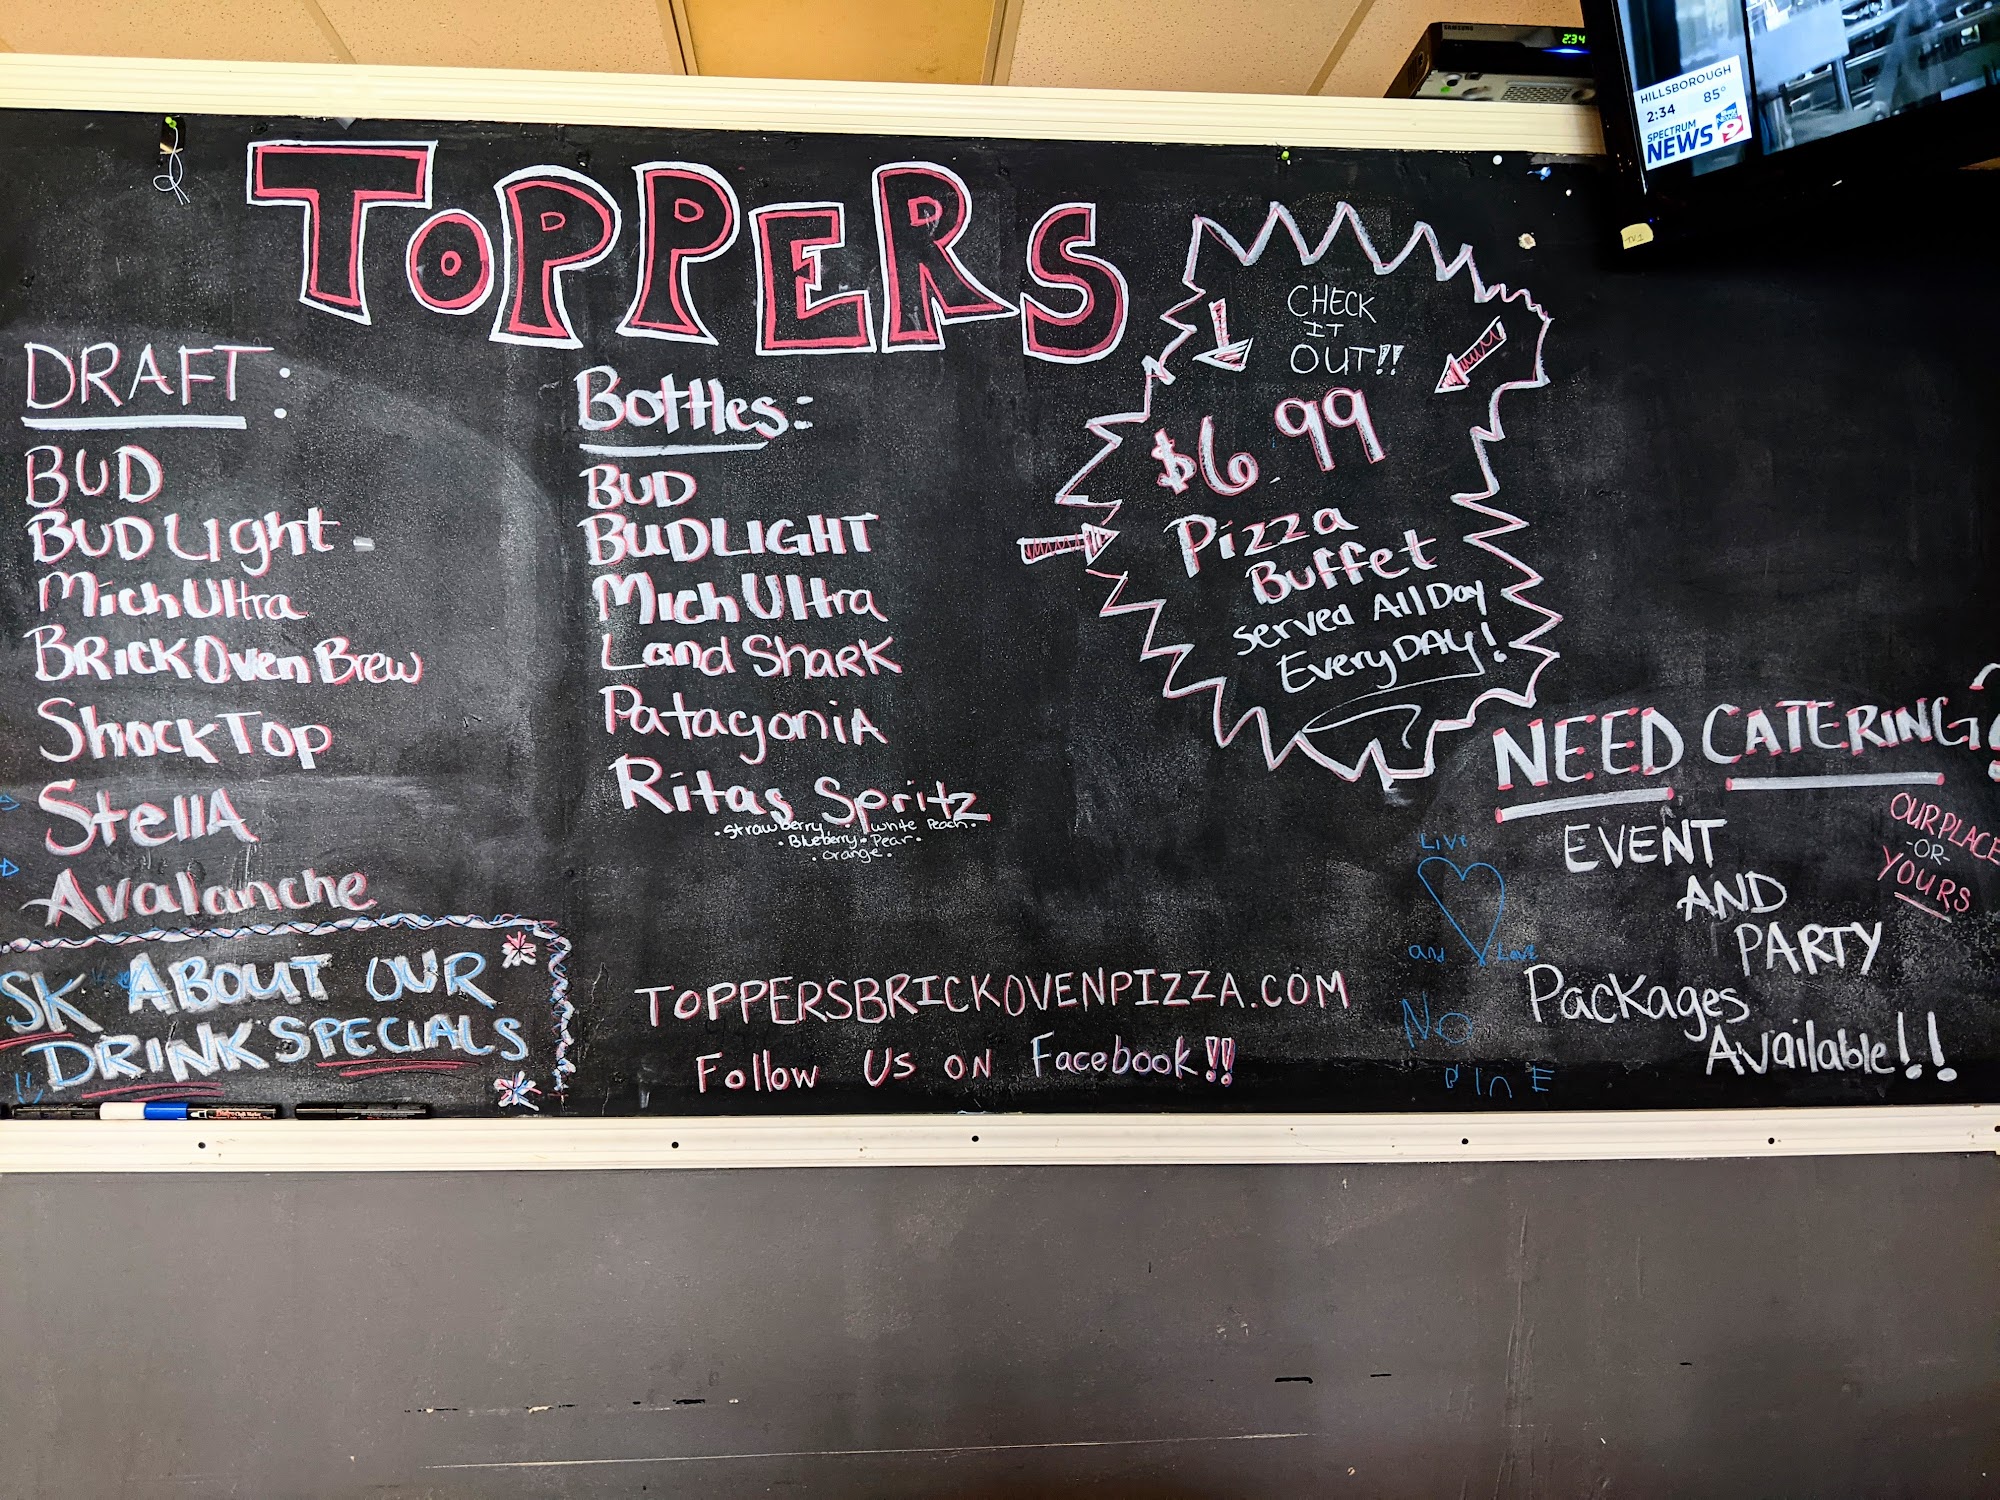 SAMSUNG
2:34
HILLSBOROUGH
2:34 85°
SPECTRUM
NEWS 9
TV1
TOPPERS
DRAFT:
BUD
BUD Light -
Mich Ultra
BRICK Oven Brew
Shock Top
StellA
Avalanche
SK ABOUT OUR
DRINK SPECIALS
!!
Bottles:
BUD
BUDLIGHT
Mich Ultra
Land SharK
PatagoniA
Ritas Spritz
• Strawberry • White Peach •
• Blueberry • Pear •
• Orange •
CHECK
IT
OUT!!
$6.99
Pizza
Buffet
Served All Day
Every DAY!
NEED CATERING?
EVENT
AND
PARTY
Packages
Available!!
OUR PLACE
-OR-
YOURS
Live
and Love
No
TOPPERSBRICKOVENPIZZA.COM
Follow Us on Facebook!!